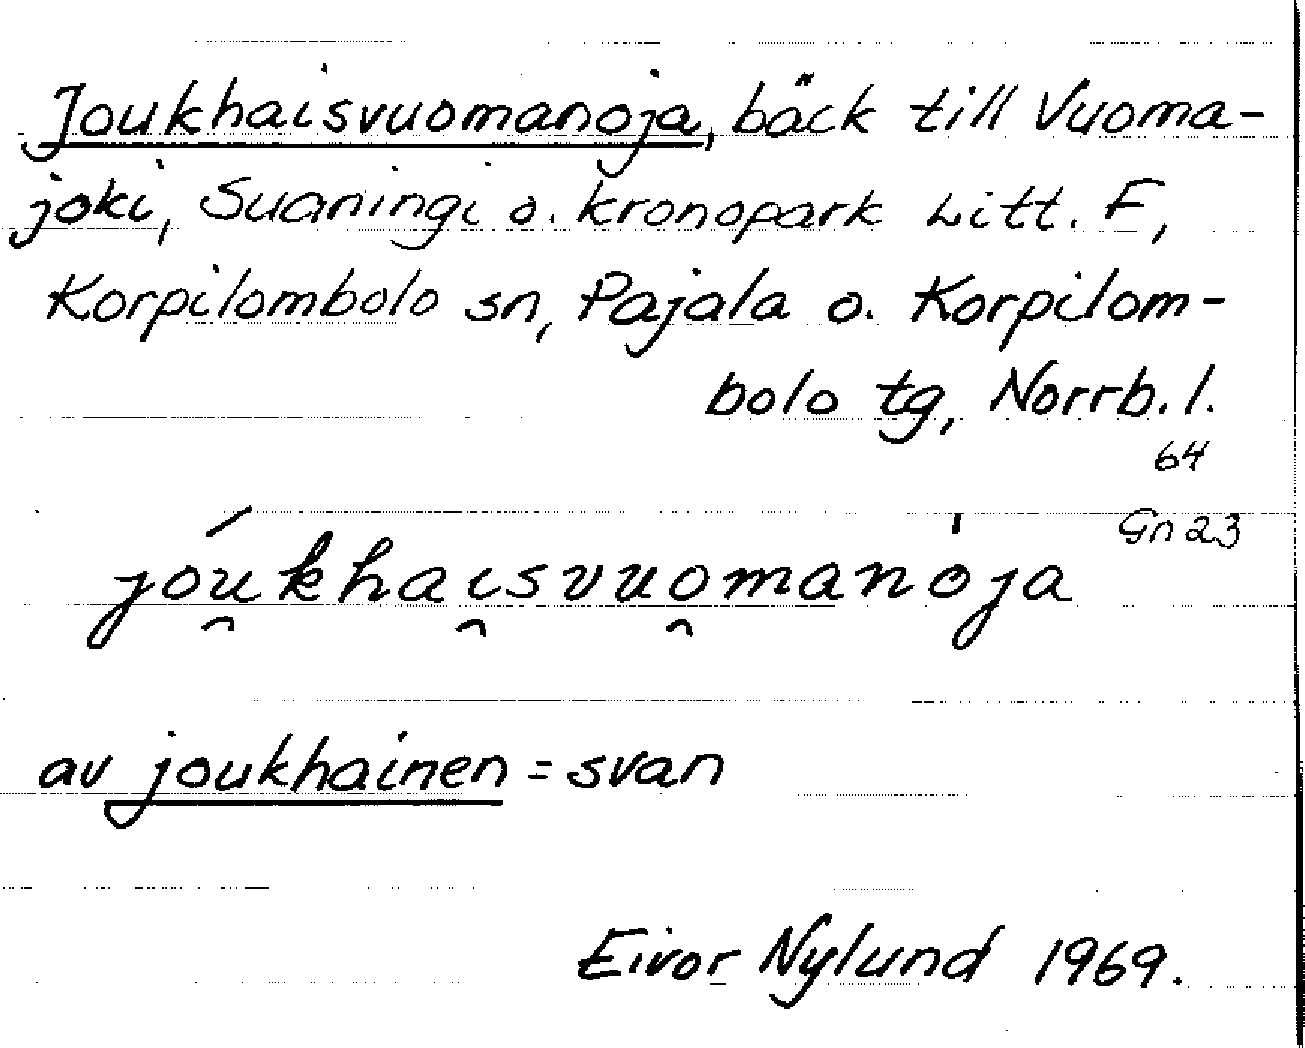 Joukhaisvuomanoja, bäck till Vuoma-
joki, Suaningi o. kronopark Litt. F,
Korpilombolo sn, Pajala o. Korpilom-
bolo tg, Norrb. l.
64
Gn 23
jóu̯khai̯svuo̯manòja
av joukhainen = svan
Eivor Nylund 1969.